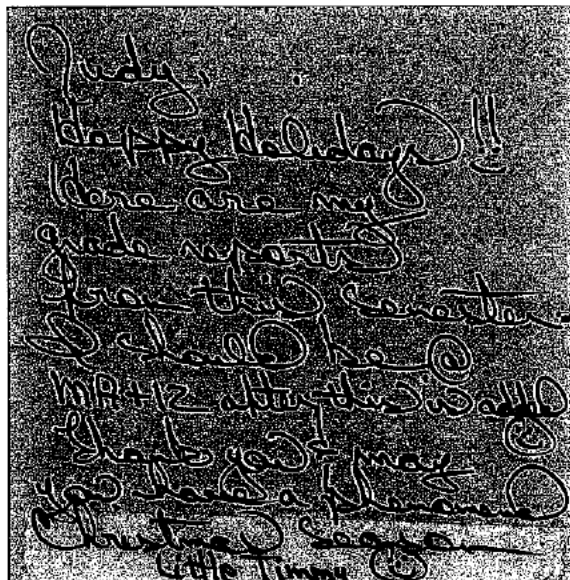 Judy,
Happy Holidays!!
Here are my
grade reports
from this semester.
I should be @
MA+12 after this is added
Thank you & may
you have a phenomenal
Christmas Season
Little Timmy